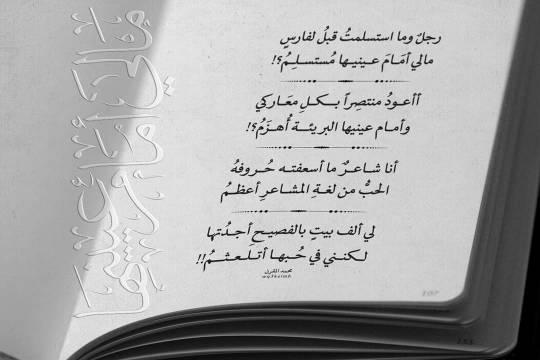 رجلٌ وما استسلمتُ قبلُ لفارسٍ
مالي أمَامَ عينيـها مُستسلِـمُ؟!
أأعـودُ منتصِراً بـكـلِ معَـاركي
وأمـام عينيها البريئــة أُهـزَمُ؟!
أنا شـاعـرٌ ما أسعفتـه حُـروفهُ
الحبُّ من لغـةِ المشـاعـرِ أعظـمُ
لي ألف بيتٍ بالفصيـحِ أجـدُتها
لـكنـني في حُـبهـا أتـلَـعثـمُ!!
مالي أمام عينيها